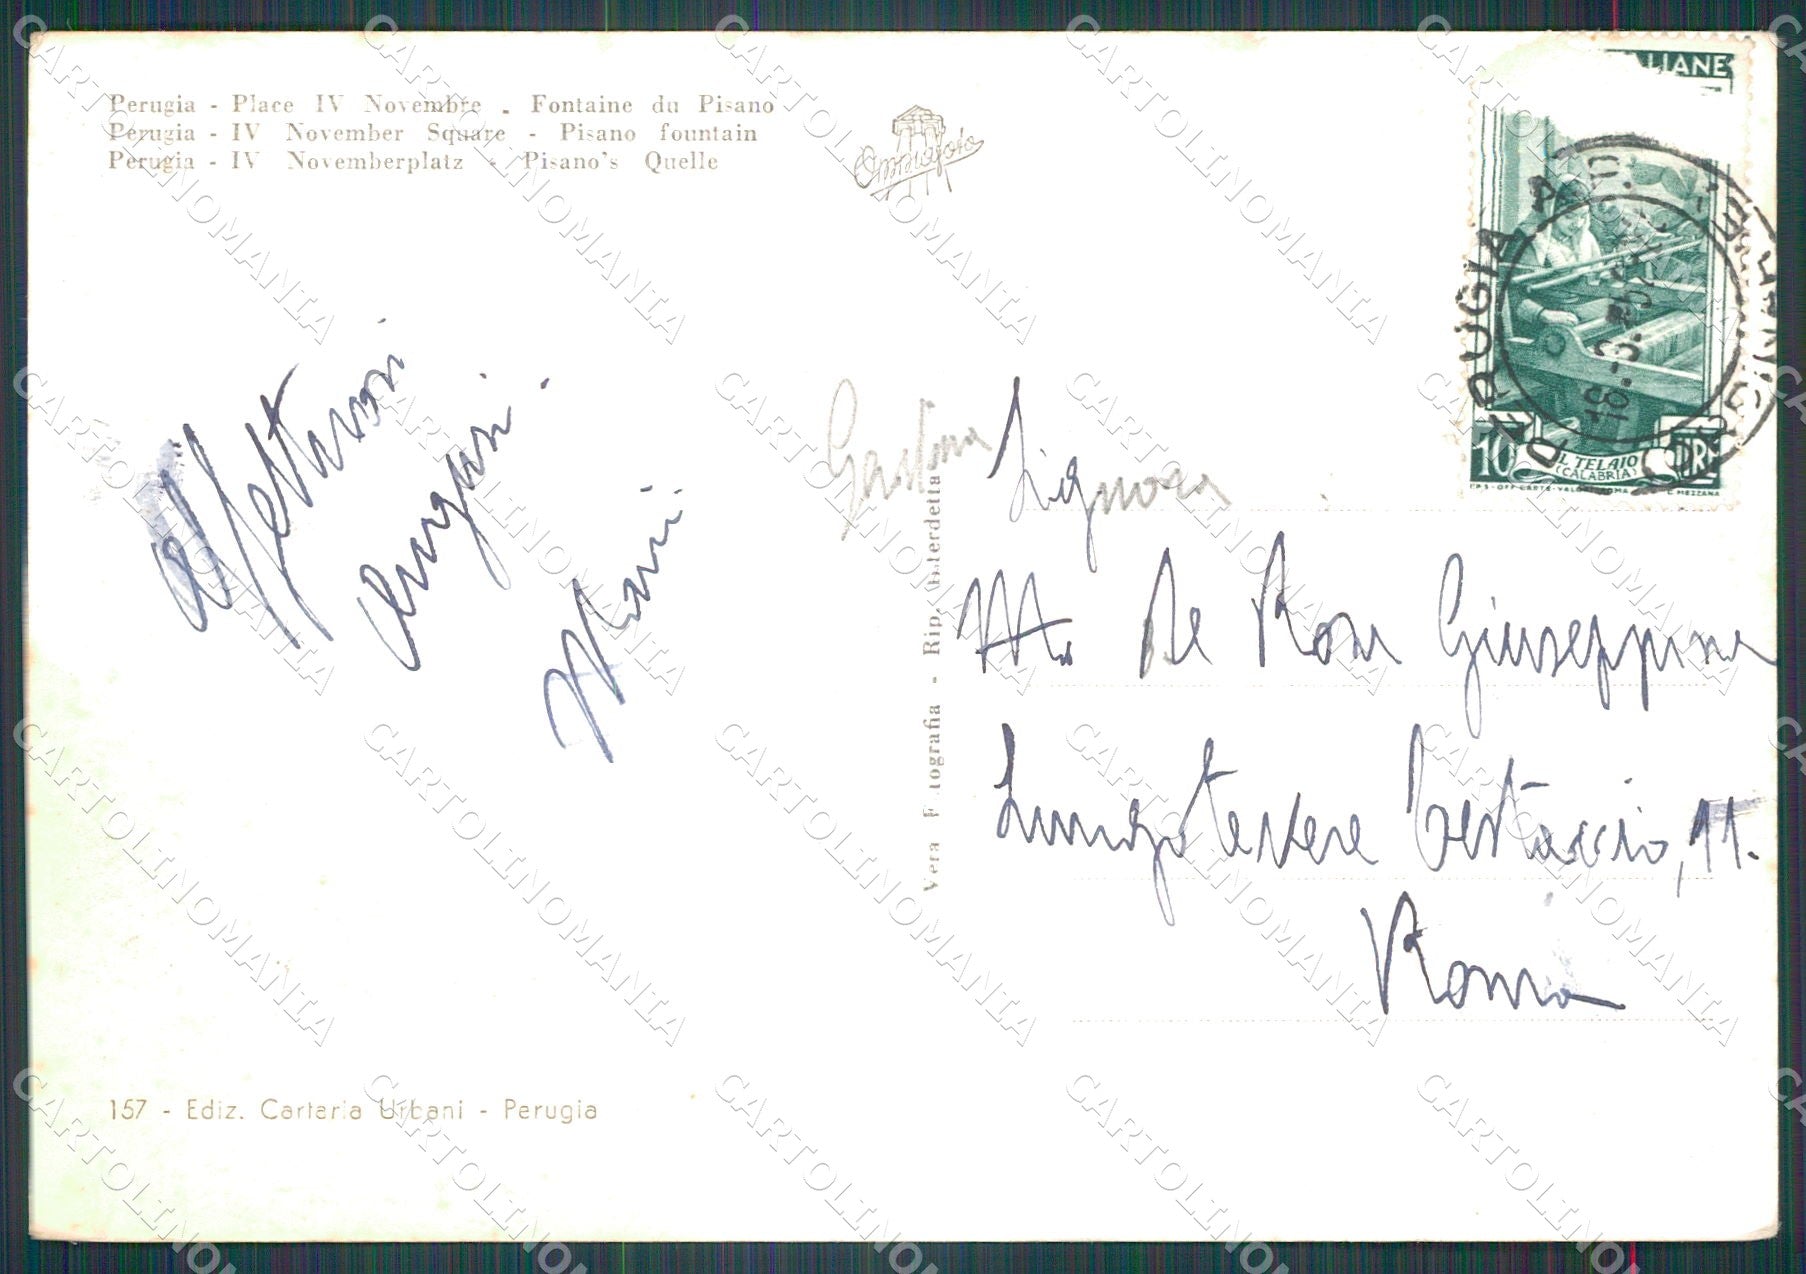 Perugia - Place IV Novembre - Fontaine du Pisano
Perugia - IV November Square - Pisano fountain
Perugia - IV Novemberplatz - Pisano's Quelle
ALIANE
PERUGIA
10 LIRE
IL TELAIO
(CALABRIA)
I.P.S - OFF. CARTE - VALORI - ROMA E. MEZZANA
Affettuosi
auguri.
Vera Fotografia - Rip. interdetta
Signora
De Rosa Giuseppina
Lungotevere Testaccio, 11.
Roma
157 - Ediz. Cartaria Urbani - Perugia
CARTOLINOMANIA